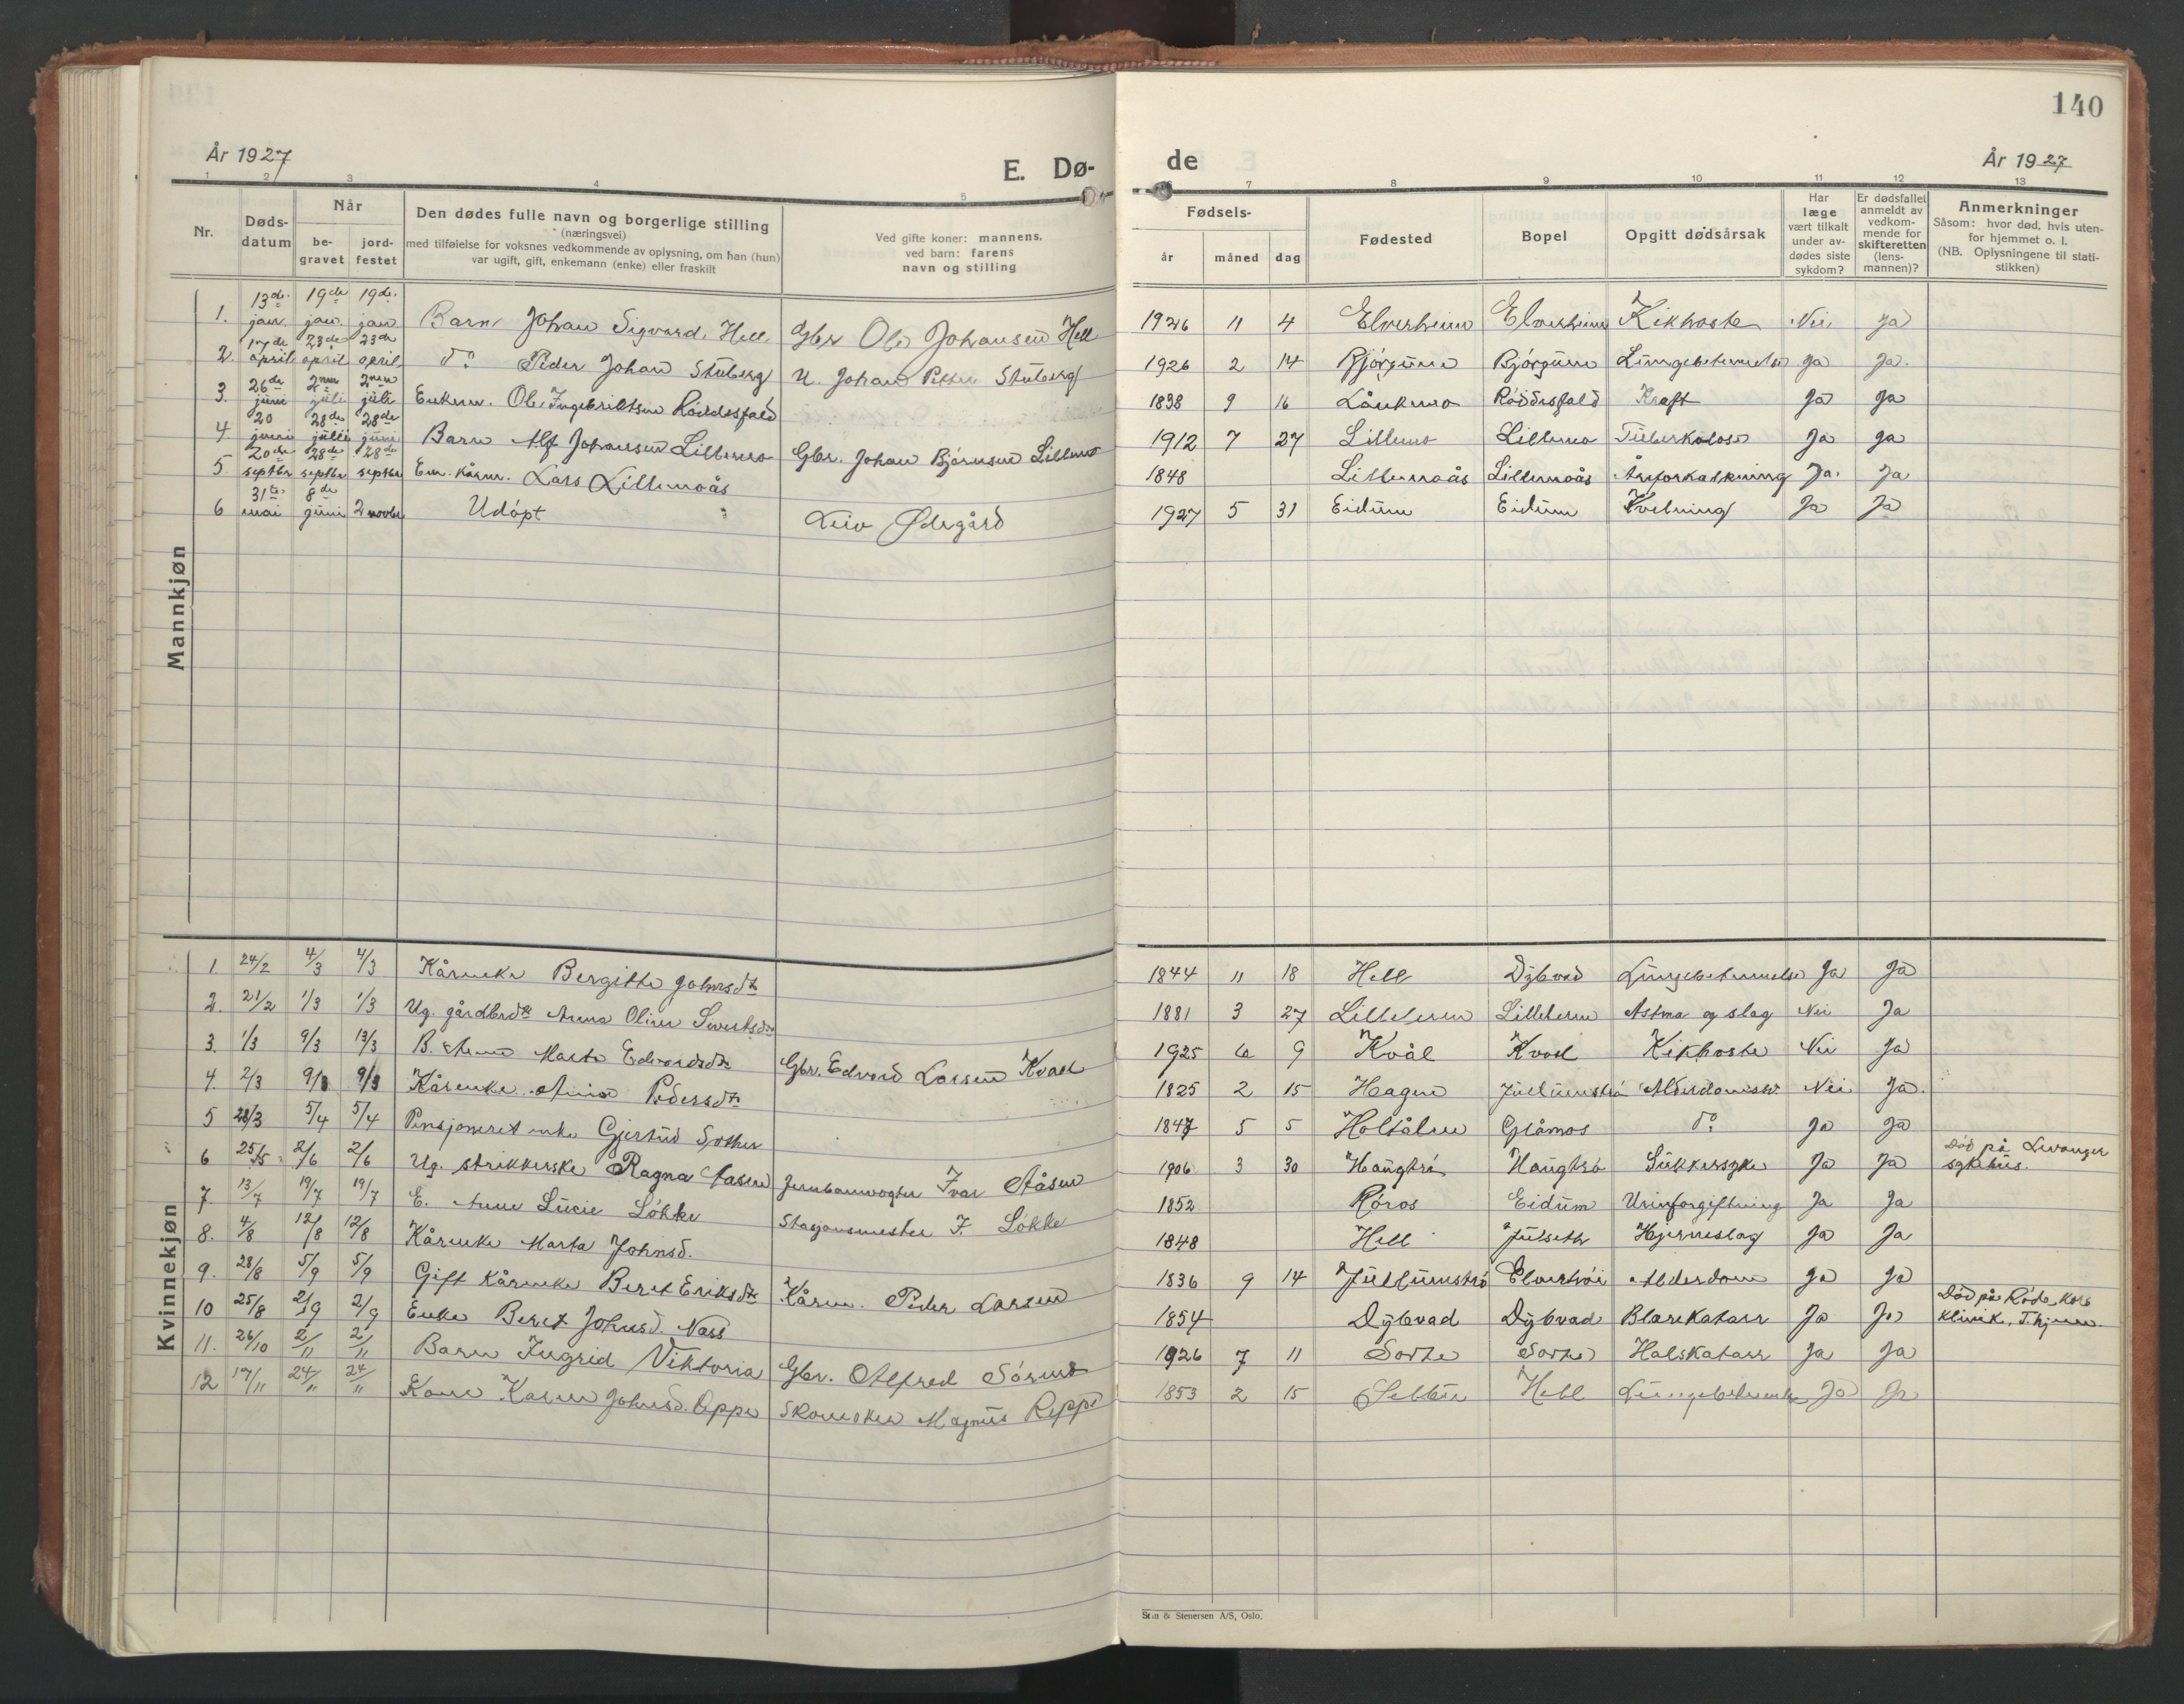 140
År 1927
E. Dø-
de
År 1927
1 2 3 4 5
7 8 9 10 11 12 13
Nr.
Døds-
datum
Når
be-
gravet
jord-
festet
Den dødes fulle navn og borgerlige stilling
(næringsvei)
med tilføielse for voksnes vedkommende av oplysning, om han (hun)
var ugift, gift, enkemann (enke) eller fraskilt
Ved gifte koner: mannens,
ved barn: farens
navn og stilling
Fødsels-
år måned dag
Fødested
Bopel
Opgitt dødsårsak
Har
læge
vært tilkalt
under av-
dødes siste
sykdom?
Er dødsfallet
anmeldt av
vedkom-
mende for
skifteretten
(lens-
mannen)?
Anmerkninger
Såsom: hvor død, hvis uten-
for hjemmet o. l.
(NB. Oplysningene til stati-
stikken)
Mannkjøn
1. 13de jan. 19de jan. 19de jan. Barn Johan Sigvard Hell Gbr Ole Johansen Hell 1926 11 4 Elverheim Elverheim Kikhoste Nei Ja
2. 17de april 23de april 23de april do Peder Johan Stuberg U. Johan Petter Stuberg 1926 2 14 Bjørgum Bjørgum Lungebetennelse Ja Ja.
3. 26de juni 2nen juli 2nen juli Enkem. Ole Ingebriktsen Røddesfald 1838 9 16 Lånkmo Røddesfald Kræft Ja Ja
4. 20 juni 28de 28de juni Barn Alf Johansen Lillemo Gbr. Johan Bjørnsen Lillemo 1912 7 27 Lillemo Lillemo Tuberkulose Ja Ja
5. 20de septbr 28de septbr 28de septbr Em. kårm. Lars Lillemoås 1848 Lillemoås Lillemoås Åreforkalkning Ja. Ja
6 31te mai 8de juni 2 novbr Udøpt Leiv Ødegård 1927 5 31 Eidum Eidum Kvelning Ja Ja
Kvinnekjøn
1 24/2 4/3 4/3 Kårenke Bergitte Johnsdtr 1844 11 18 Hell Dybvad Lungebetennelse Ja Ja
2. 21/2 1/3 1/3 Ug. gårdbrdtr Anna Oline Sivertsdtr 1881 3 27 Nei Ja Astma og slag
3. 1/3 9/3 13/3 B. Anna Marta Edvardsdtr Gbr. Edvard Larsen Kvål 1925 6 9 Kvål Kvål Kikhoste Nei Ja
4. 2/3 9/3 9/3 Kårenke Pedersdtr 1825 2 15 Hagen Nei Ja.
5 28/3 5/4 5/4 Pensjoneret enke Gjertrud 1847 5 5 Holtålen Glåmos do Ja Ja
6 25/5 2/6 2/6 Ug. strikkerske Ragna Aasen Jernbanevogter Ivar Aåsen 1906 3 30 Haugtrø Haugtrø Sukkersyke Ja Ja Død på Levanger
sykehus.
7. 13/7 19/7 19/7 E. Anne Lucie Løkke Stasjonsmester F. Løkke 1852 Røros Eidum Urinforgiftning Ja Ja
8. 4/8 12/8 12/8 Kårenke Marta Johnsd. 1848 Hell Julseth Hjerneslag Ja Ja
9. 28/8 5/9 5/9 Gift kårenke Beret Eriksdtr Kårm. Peder Larsen 1836 9 14 Alderdom Ja Ja
10 25/8 2/9 2/9 Enke Beret Johnsd. Næss 1854 Dybvad Dybvad Blærekatarr Ja Ja Død på Røde Kors
klinik, T.hjem.
11. 26/10 2/11 2/11 Barn Ingrid Viktoria Gbr. Alfred 1926 7 11 Sorte Sorte Halskatarr Ja Ja
12 17/11 24/11 24/11 Kone Karen Johnsd. Reppe Skomaker Magnus Reppe 1853 2 15 Selbu Hell Lungebetennelse Ja Ja
Steen & Stenersen A/S, Oslo.